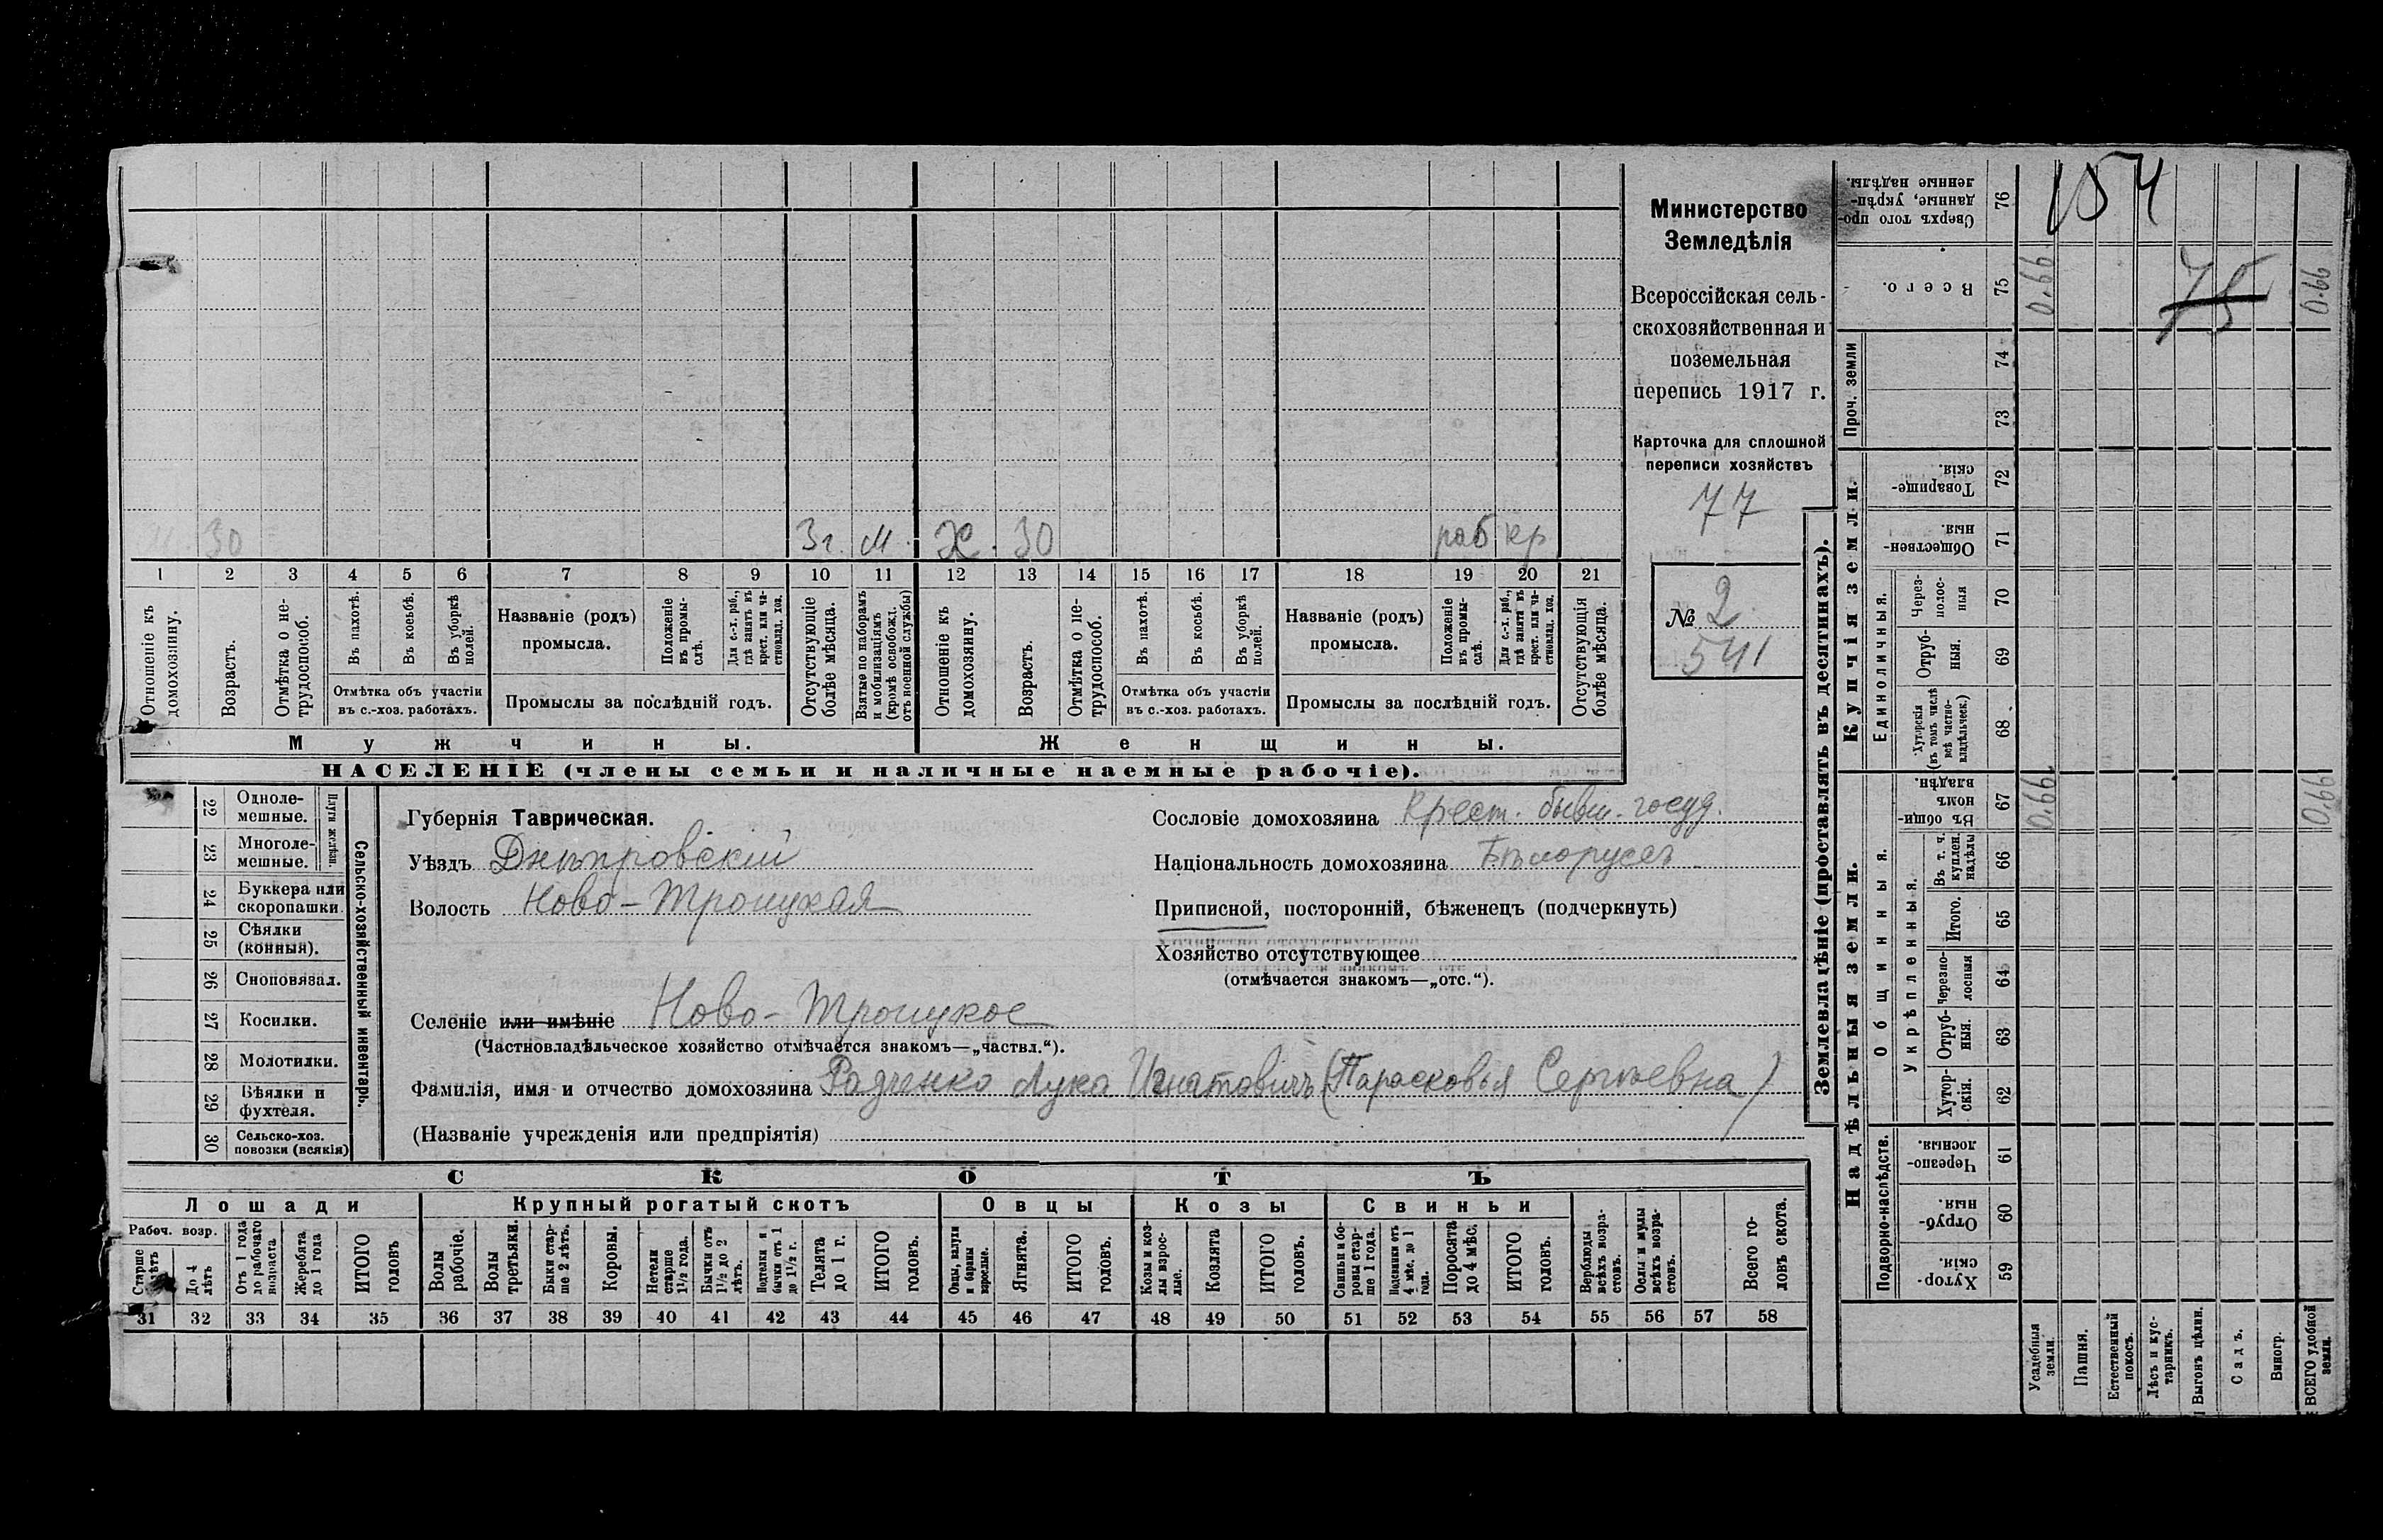 154
75
Министерство
Земледѣлія
Всероссійская сель-
скохозяйственная и
поземельная
перепись 1917 г.
Карточка для сплошной
переписи хозяйствъ
77
№ 2
541
30 3г. М. Ж. 30 раб кр
1 2 3 4 5 6 7 8 9 10 11 12 13 14 15 16 17 18 19 20 21
Отношеніе къ домохозяину.
Возрастъ.
Отмѣтка о не-трудоспособ.
Въ пахотѣ.
Въ косьбѣ.
Въ уборкѣ полей.
Отмѣтка объ участіи
въ с.-хоз. работахъ.
Названіе (родъ)
промысла.
Положеніе въ промы-слѣ.
Для с.-х. раб., гдѣ занятъ въ крест. или ча-стновлад. хоз.
Промыслы за послѣдній годъ.
Отсутствующіе болѣе мѣсяца.
Взятые по наборамъ и мобилизаціямъ (кромѣ освобожд. отъ военной службы)
Отношеніе къ домохозяину.
Возрастъ.
Отмѣтка о не-трудоспособ.
Въ пахотѣ.
Въ косьбѣ.
Въ уборкѣ полей.
Отмѣтка объ участіи
въ с.-хоз. работахъ.
Названіе (родъ)
промысла.
Положеніе въ промы-слѣ.
Для с.-х. раб., гдѣ занята въ крест. или ча-стновлад. хоз.
Промыслы за послѣдній годъ.
Отсутствующія болѣе мѣсяца.
Мужчины.
Женщины.
НАСЕЛЕНІЕ (члены семьи и наличные наемные рабочіе).
22 Одноле-мешные.
23 Многоле-мешные.
Плуги желѣзн.
24 Буккера или скоропашки
25 Сѣялки (конныя).
26 Сноповязал.
27 Косилки.
28 Молотилки.
29 Вѣялки и фухтеля.
30 Сельско-хоз. повозки (всякія)
Сельско-хозяйственный инвентарь.
Губернія Таврическая.
Уѣздъ Днѣпровскій
Волость Ново-Троицкая
Сословіе домохозяина Крест. бывш. госуд.
Національность домохозяина Бѣлорусъ
Приписной, посторонній, бѣженецъ (подчеркнуть)
Хозяйство отсутствующее
(отмѣчается знакомъ—„отс.“).
Селеніе или имѣніе Ново-Троицкое
(Частновладѣльческое хозяйство отмѣчается знакомъ—„частвл.“).
Фамилія, имя и отчество домохозяина Радченко Лука Игнатовичъ (Парасковья Сергѣевна)
(Названіе учрежденія или предпріятія)
СКОТЪ
Лошади
Крупный рогатый скотъ
Овцы
Козы
Свиньи
Рабоч. возр.
Старше лѣтъ
До 4 лѣтъ
Отъ 1 года до рабочаго возраста
Жеребята до 1 года
ИТОГО головъ
Волы рабочіе.
Волы третьяки.
Быки стар-ше 2 лѣтъ.
Коровы.
Нетели старше 1½ года.
Бычки отъ 1½ до 2 лѣтъ.
Подтелки и бычки отъ 1 до 1½ г.
Телята до 1 г.
ИТОГО головъ.
Овцы, валухи и бараны взрослые.
Ягнята.
ИТОГО головъ.
Козы и коз-лы взрос-лые.
Козлята
ИТОГО головъ.
Свиньи и бо-ровы стар-ше 1 года.
Подсвинки отъ 4 мѣс. до 1 года.
Поросята до 4 мѣс.
ИТОГО головъ.
Верблюды всѣхъ возра-стовъ.
Ослы и мулы всѣхъ возра-стовъ.
Всего го-ловъ скота.
31 32 33 34 35 36 37 38 39 40 41 42 43 44 45 46 47 48 49 50 51 52 53 54 55 56 57 58
Землевладѣніе (проставлять въ десятинахъ).
Надѣльныя земли.
Купчія земли.
Проч. земли
Подворно-наслѣдств.
Общинныя.
Укрѣпленныя.
Единоличныя.
Сверхъ того про-данные, укрѣп-ленные надѣлы. 76
Всего. 75 0.66 0.66
74
73
Товарище-скія. 72
Обществен-ныя. 71
Через-полос-ныя 70
Отруб-ныя. 69
Хуторскія (въ томъ числѣ всѣ частно-владѣльческ.) 68
Въ общин-номъ владѣн. 67 0.66 0.66
Въ т. ч. куплен. надѣлы 66
Итого. 65
Черезпо-лосныя 64
Отруб-ныя. 63
Хутор-скія. 62
Черезпо-лосныя. 61
Отруб-ныя. 60
Хутор-скія. 59
Усадебныя земли.
Пашня.
Естественный покосъ.
Лѣсъ и кус-тарникъ.
Выгонъ цѣлин.
Садъ.
Виногр.
ВСЕГО удобной земли.